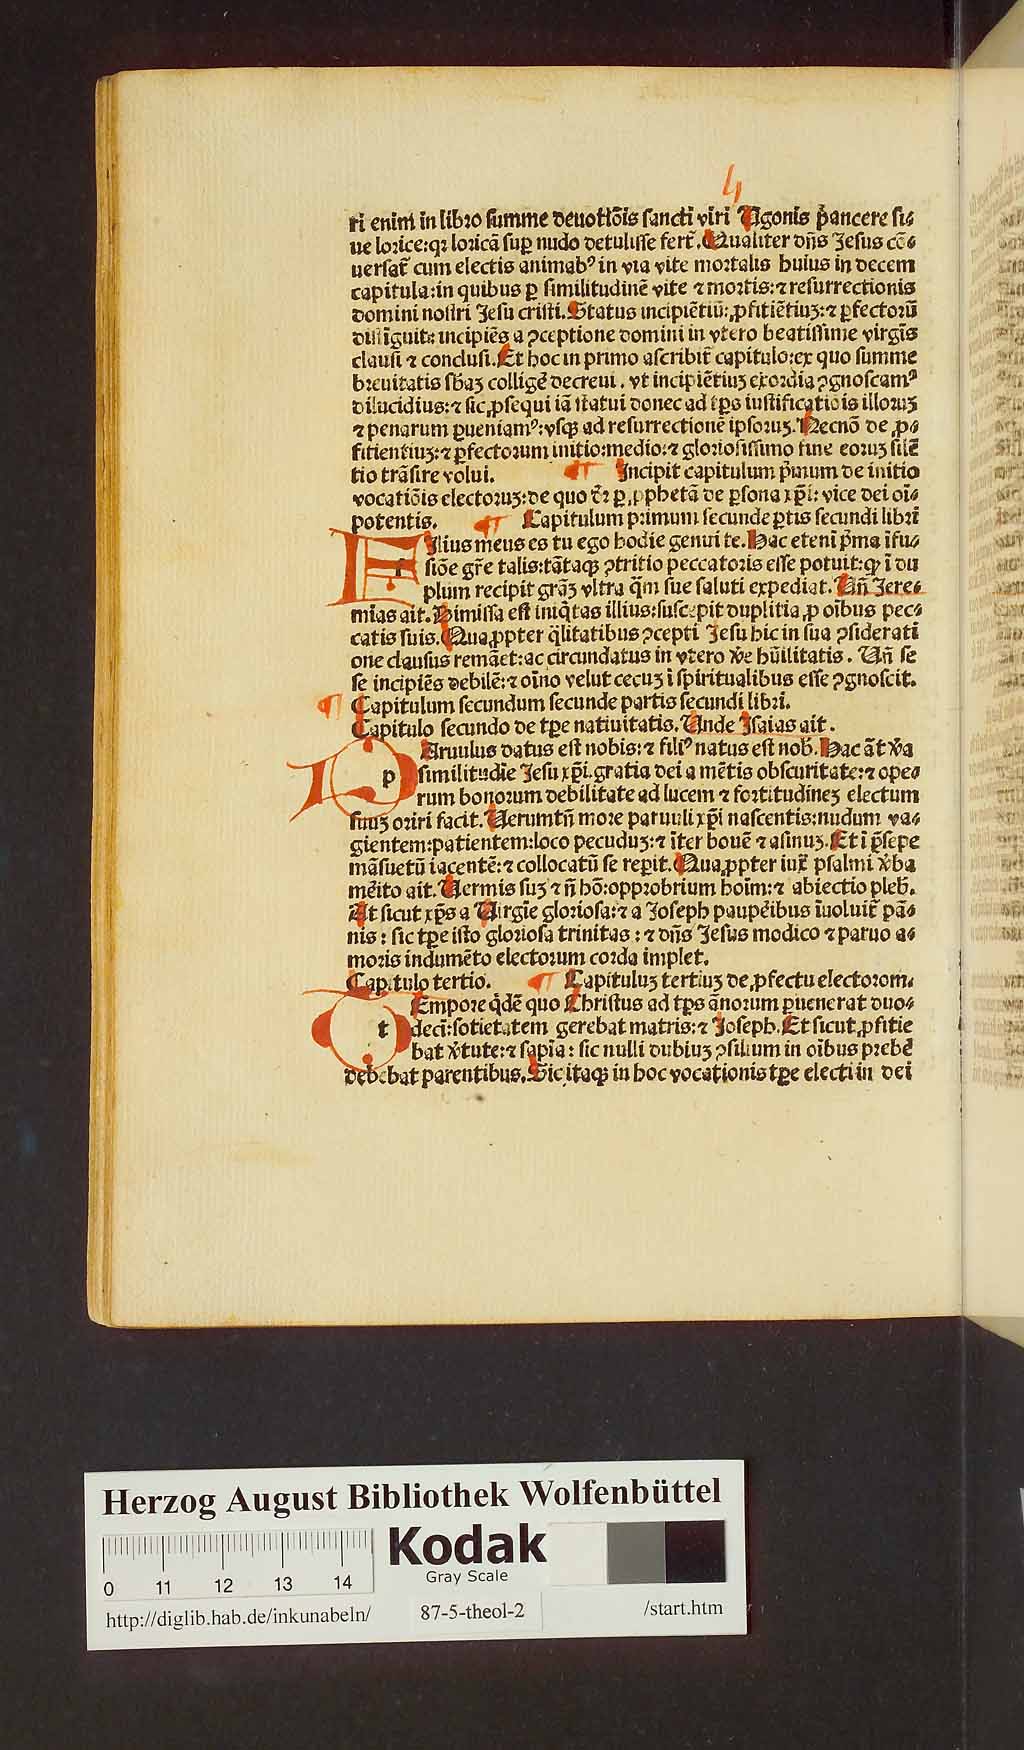 4
ri enim in libro summe deuotiõis sancti viri Vgonis p̃ancere si⸗
ue lorice:qꝛ loricã suꝑ nudo detulisse fert̃. Qualiter dñs Jesus cõ⸗
uersat̃ cum electis animabꝰ in via vite mortalis huius in decem
capitula:in quibus ꝑ similitudinẽ vite ⁊ mortis:⁊ resurrectionis
domini nostri Jesu cristi. Status incipiẽtiũ: ꝓfitiẽtiuꝫ:⁊ ꝑfectorũ
distĩguit: incipiẽs a ꝯceptione domini in vtero beatissime virgĩs
clausi ⁊ conclusi. Et hoc in primo ascribit̃ capitulo:ex quo summe
breuitatis sb̃aꝫ colligẽ decreui. vt incipiẽtiuꝫ exordia ꝯgnoscamꝰ
dilucidius:⁊ sic ꝓsequi iã statui donec ad tp̃s iustificatiois illoruꝫ
⁊ penarum ꝑueniamꝰ:vsqꝫ ad resurrectionẽ ipsoruꝫ. Necnõ de ꝓ⸗
fitientiuꝫ:⁊ ꝑfectorum initio:medio:⁊ gloriosissimo fine eoruꝫ silẽ
tio trãsire volui. ¶ Incipit capitulum p̃mum de initio
vocatiõis electoruꝫ:de quo d̃ꝛ ꝑ ꝓphetã de ꝑsona xp̃i: vice dei oĩ⸗
potentis. ¶ Capitulum primum secunde ꝑtis secundi libri
F Ilius meus es tu ego hodie genui te. Hac eteni p̃ma ĩfu⸗
siõe gr̃e talis:tãtaqꝫ ꝯtritio peccatoris esse potuit:qꝙ ĩ du
plum recipit grãꝫ vltra q̃m sue saluti expediat. Vñ Jere⸗
mias ait. Dimissa est iniq̃tas illius:suscepit duplitia ꝓ oĩbus pec⸗
catis suis. Quaꝓpter q̃litatibus ꝯcepti Jesu hic in sua ꝯsiderati
one clausus remãet:ac circundatus in vtero v̾e hũilitatis. Vñ se
se incipiẽs debilẽ:⁊ oĩno velut cecuꝫ ĩ spiritualibus esse ꝯgnoscit.
¶ Capitulum secundum secunde partis secundi libri.
Capitulo secundo de tp̃e natiuitatis. Vnde Isaias ait.
p Aruulus datus est nobis:⁊ filiꝰ natus est nob̃. Hac ãt v̾a
similitudĩe Jesu xp̃i.gratia dei a mẽtis obscuritate:⁊ ope⸗
rum bonorum debilitate ad lucem ⁊ fortitudineꝫ electum
suuꝫ oriri facit. Verumtñ more paruuli xp̃i nascentis:nudum va⸗
gientem:patientem:loco pecuduꝫ:⁊ ĩter bouẽ ⁊ asinuꝫ. Et ĩ p̃sepe
mãsuetũ iacentẽ:⁊ collocatũ se reꝑit. Quaꝓpter iux̃ psalmi v̾ba
mẽito ait. Vermis suꝫ ⁊ ñ hõ:opprobrium hoĩm:⁊ abiectio pleb̃.
At sicut xp̃s a Virgĩe gloriosa:⁊ a Joseph paupẽibus ĩuoluit̃ pã⸗
nis: sic tp̃e isto gloriosa trinitas: ⁊ dñs Jesus modico ⁊ paruo a⸗
moris indumẽto electorum corda implet.
Capitulo tertio. ¶ Capituluꝫ tertiuꝫ de ꝓfectu electorom.
t Empore q̃dẽ quo Christus ad tp̃s ãnorum ꝑuenerat duo⸗
deci:sotietatem gerebat matris:⁊ Joseph. Et sicut ꝓfitie
bat v̾tute:⁊ sapĩa: sic nulli dubiuꝫ ꝯsilium in oĩbus prebẽ
debebat parentibus. Sic itaqꝫ in hoc vocationis tp̃e electi in dei
Herzog August Bibliothek Wolfenbüttel
Kodak
Gray Scale
0 11 12 13 14
http://diglib.hab.de/inkunabeln/ 87-5-theol-2 /start.htm